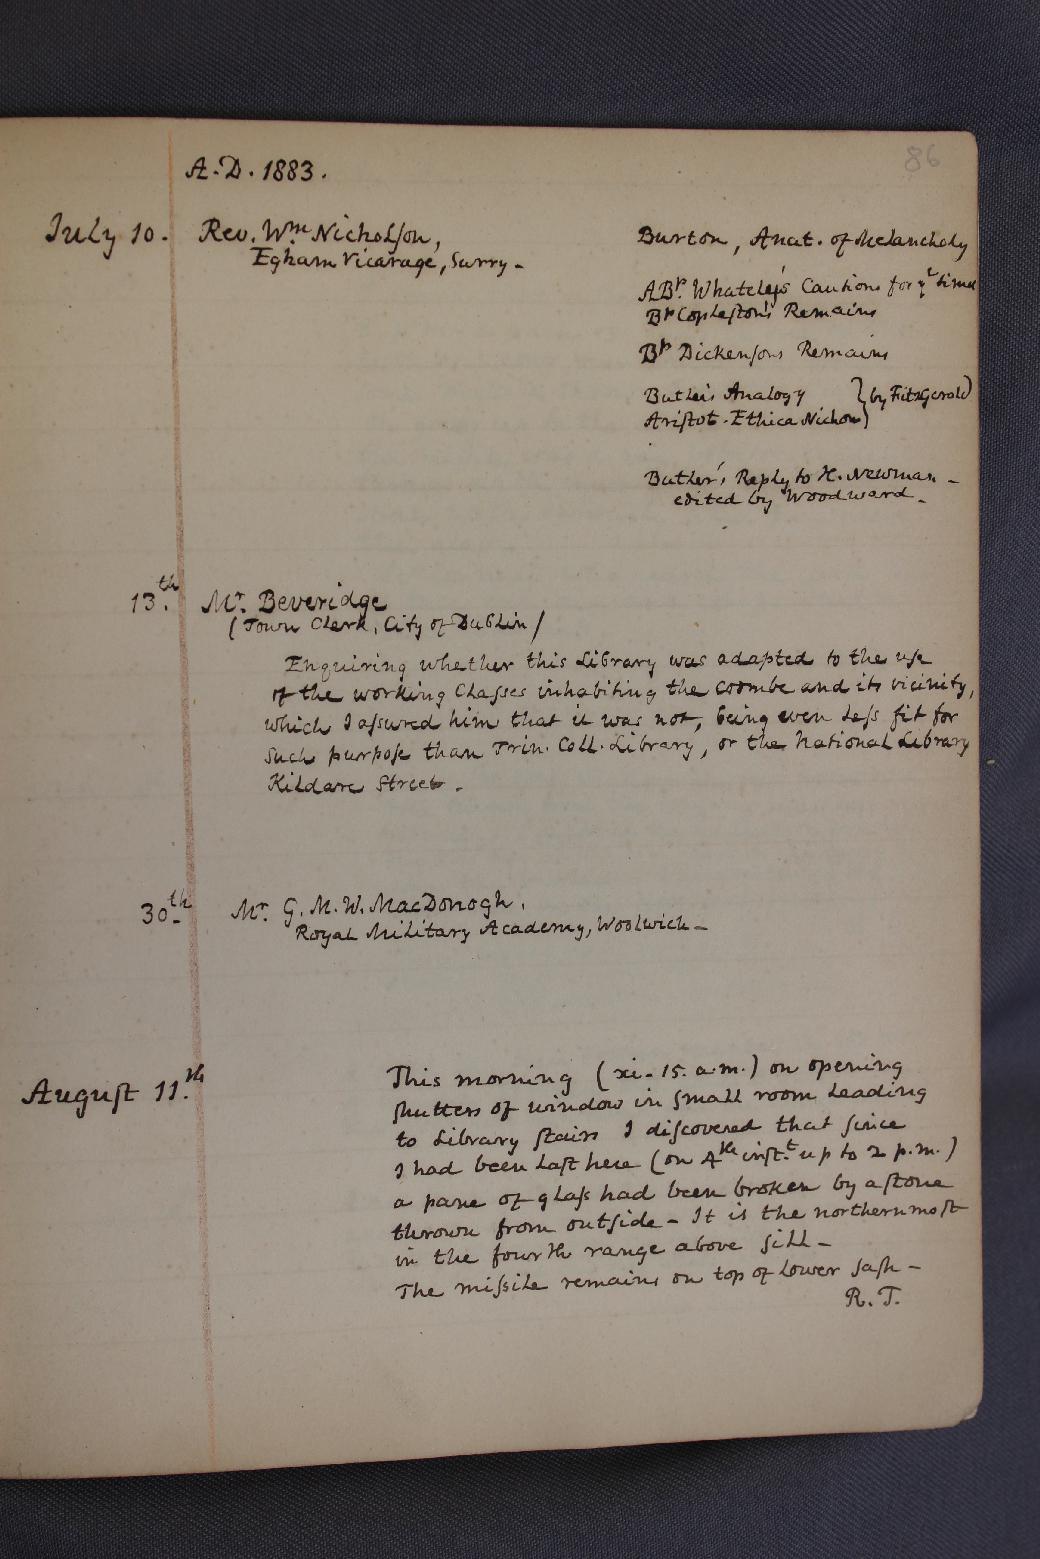 86
A.D. 1883.
July 10. Rev. Wm. Nicholson,
Egham Vicarage, Surry -
Burton, Anat. of Melancholy
ABp. Whateley's Cautions for ye times
Bp Copleston's Remains
Bp Dickensons Remains
Butler's Analogy } by FitzGerald
Aristot. Ethica Nichom
Butler's Reply to H. Newman -
edited by Woodward -
13th. Mr. Beveridge
(Town Clerk, City of Dublin)
Enquiring whether this Library was adapted to the use
of the working Classes inhabiting the Coombe and its vicinity,
which I assured him that it was not, being even less fit for
such purpose than Trin. Coll. Library, or the National Library
Kildare Street.
30th. Mr. G. M. W. MacDonogh.
Royal Military Academy, Woolwich -
August 11th. This morning (xi - 15. a.m.) on opening
shutters of window in small room leading
to Library stairs I discovered that since
I had been last here (on 4th inst.t up to 2 p.m.)
a pane of glass had been broken by a stone
thrown from outside - It is the northernmost
in the fourth range above sill -
The missile remains on top of lower sash -
R. T.